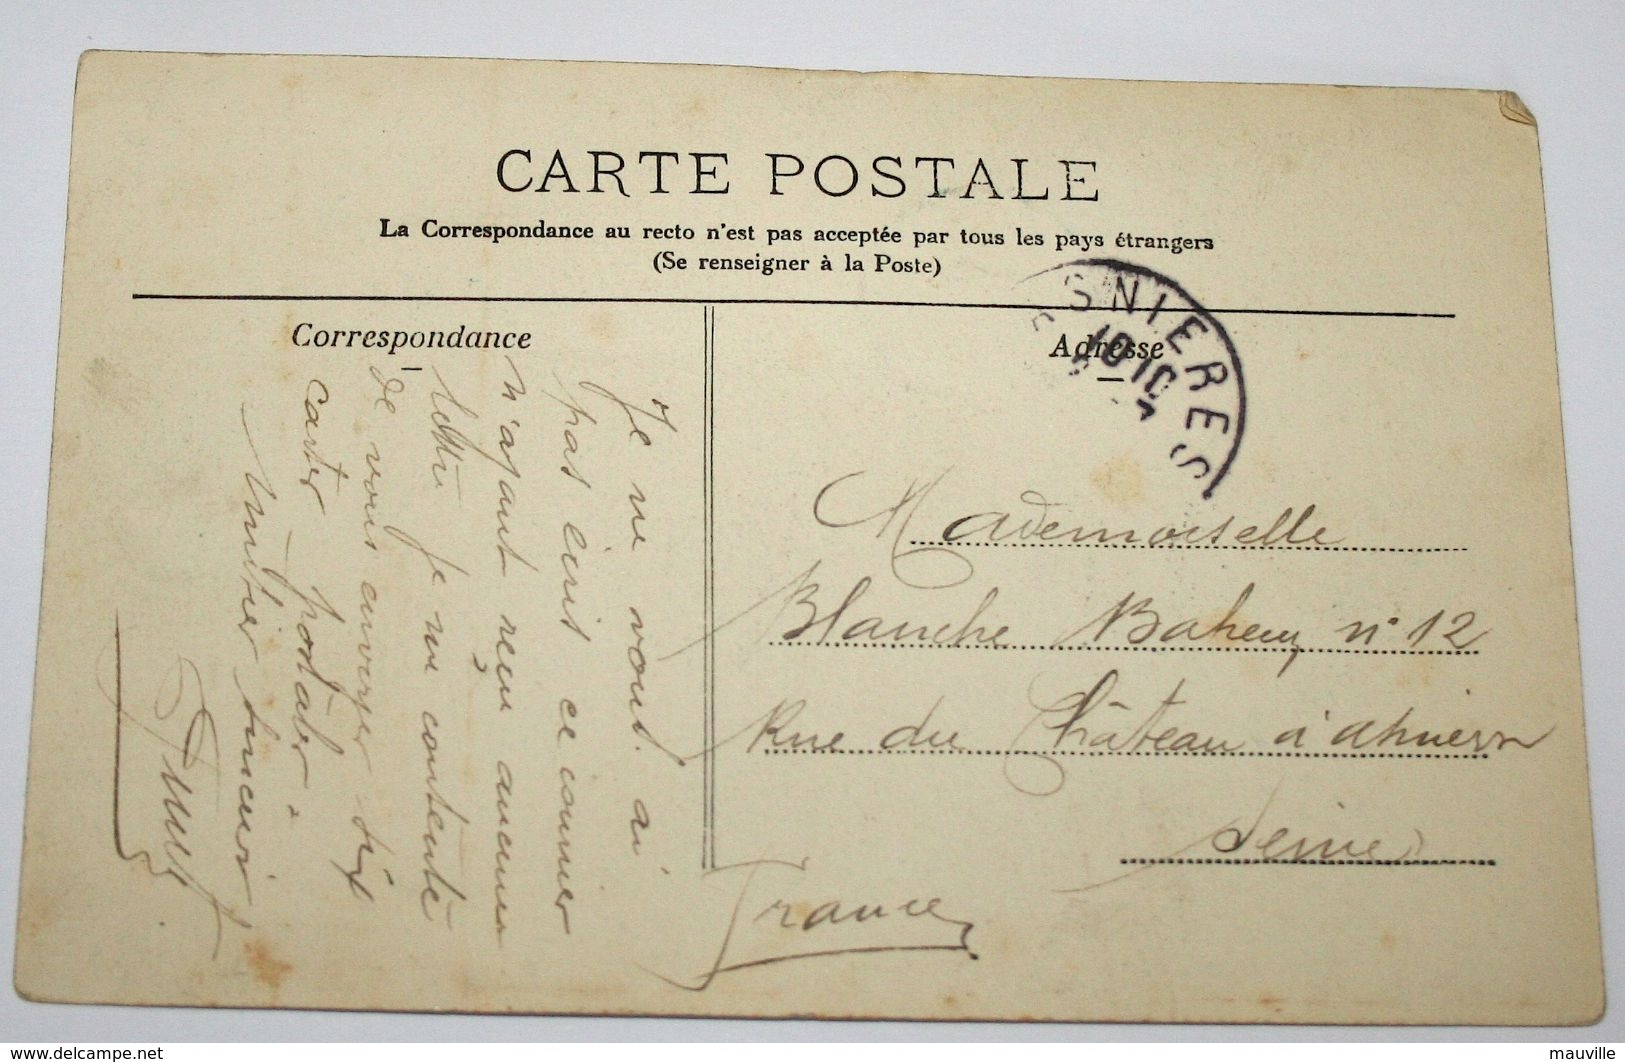 CARTE POSTALE
La Correspondance au recto n'est pas acceptée par tous les pays étrangers
(Se renseigner à la Poste)
Correspondance
Je ne vous ai
pas écrit ce courrier
n'ayant reçu aucune
lettre Je me contente
de vous envoyer six
cartes postales.
Amitiés sincères
Adresse
SNIERES
Mademoiselle
Blanche n° 12
Rue du Château à
Seine
France
delcampe.net
mauville